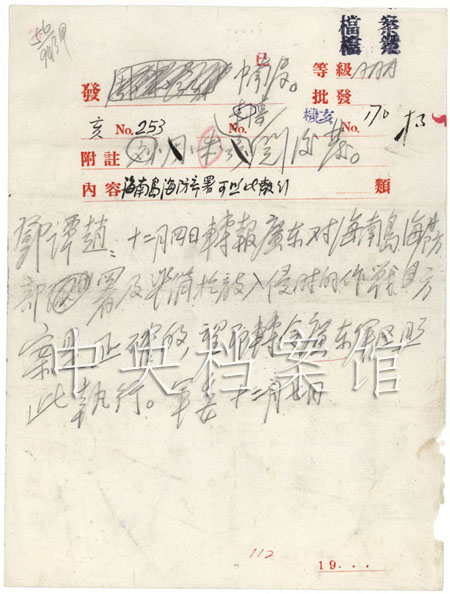 檔案
發 中南局。 等級 AAAA
批發
亥 No. 253 No. 機亥 No. 170
附註
內容 海南島海防部署可照此執行 類
鄧譚趙：十二月四日轉報廣东对海南島海防
部署及準備抗敵入侵时的作戰方
案是正確的，望即轉令廣东軍區照
此執行。軍委 十二月七日
中央档案馆
112
19...